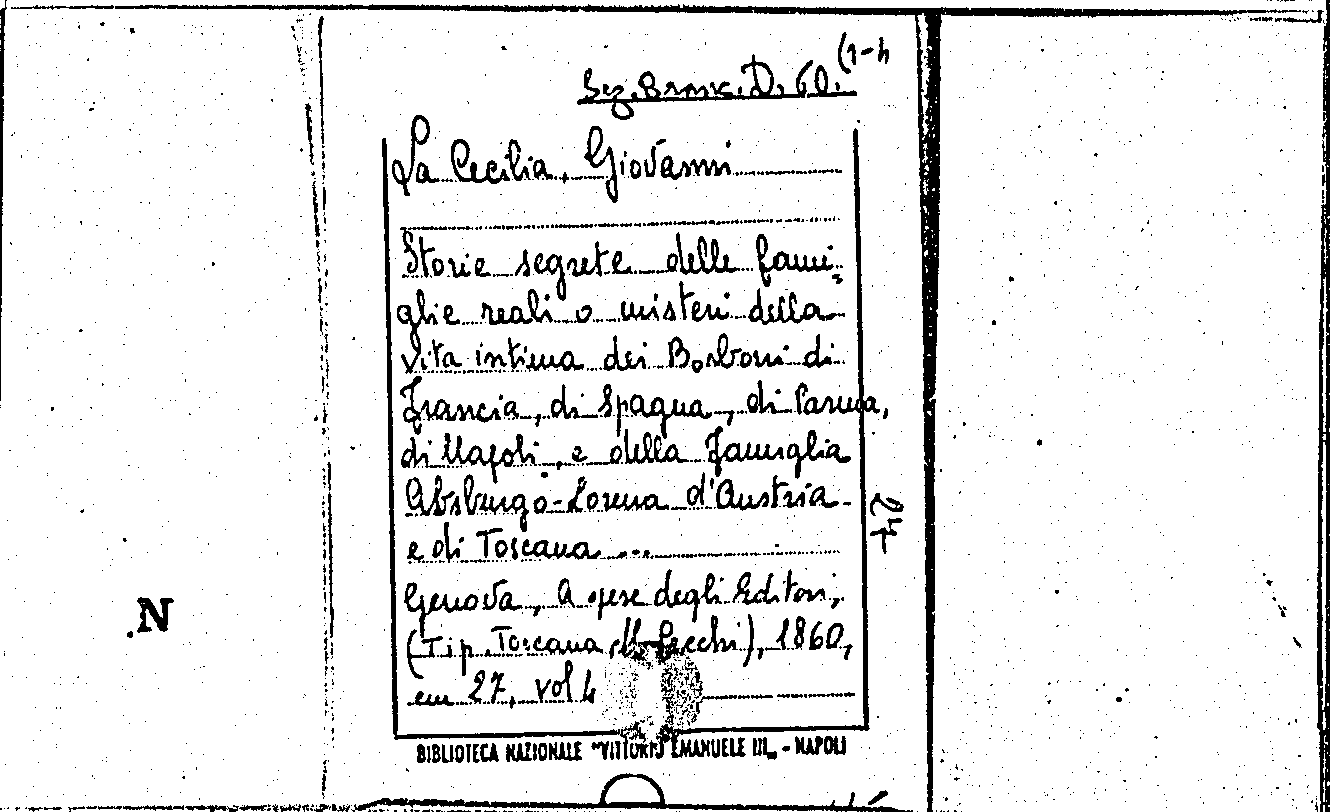 Sez. Branc. D. 60. (1-4
La Cecilia, Giovanni
Storie segrete delle fami-
glie reali o misteri della
vita intima dei Borboni di
Francia, di Spagna, di Parma,
di Napoli, e della Famiglia
Absburgo-Lorena d'Austria
e di Toscana ...
Genova, A spese degli Editori,
(Tip. Toscana, M. Cecchi), 1860,
cm 27, vol 4
BIBLIOTECA NAZIONALE "VITTORIO EMANUELE III„ - NAPOLI
.N